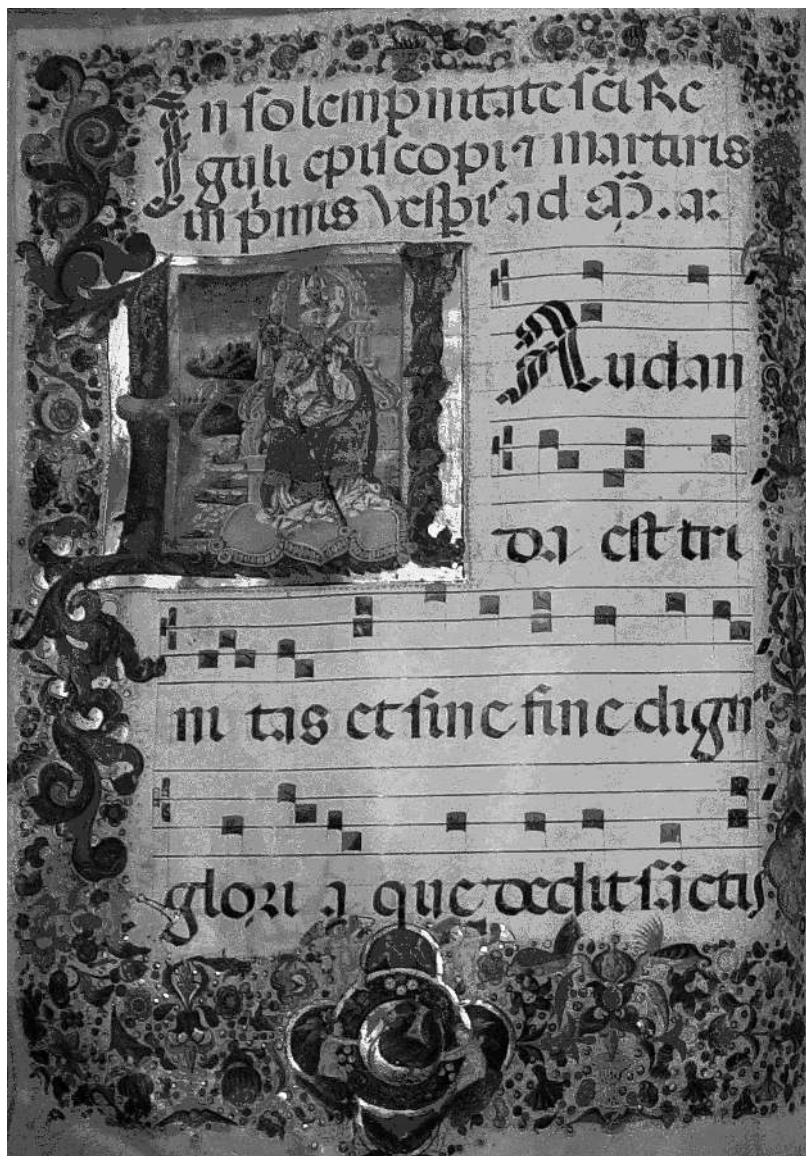 In solempnitate sci Re
guli episcopi ⁊ martiris
in pimis Vespis ad a:
LAudan
da est tri
ni tas et sine fine digna
glori a que dedit sactis